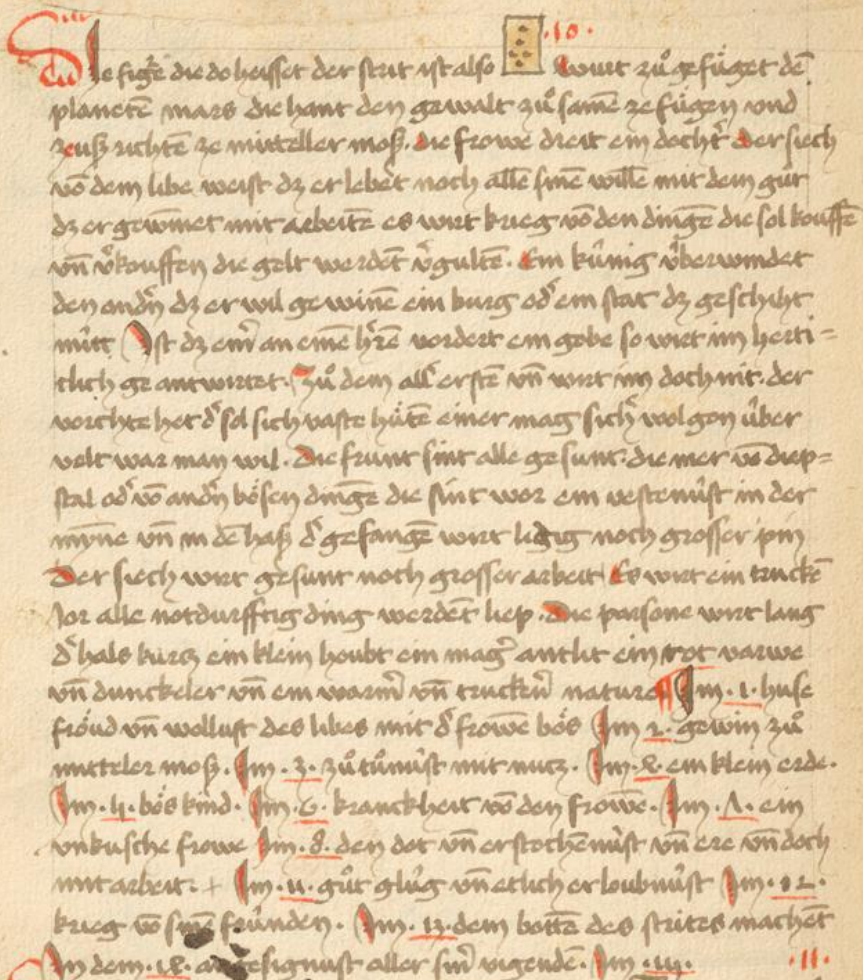 ·10·
Die figr̄e die do heisset der strit ist also wirt zů gefüget dē
planetē mars die hant den gewalt zů samē ze fügen vnd
zeusz richtē ze mitteller mosz. die frowe dreit ein docht' der siech
vō dem libe weist dz er lebet noch allē sinē wille mit dem gůt
dz er gewinnet mit arbeitē es wirt krieg vō den dingē die sol kouffē
vn̄ v'kouffen die gelt werdēt v'gultē. Ein künig v̊berwindet
den andn̄ dz er wil gewinē ein burg od' ein stat dz geschiht
nüt Ist dz ein' an einē h'rē vordert ein gobe so wirt im herti=
klich ge antwirtet. Zů dem all' erstē vn̄ wirt im doch nit. der
vorchte het d' sol sich vaste hůtē einer mag sich' wol gon über
velt war man wil. Die frunt sint alle gesunt. die mer vō diep=
stal od' vō andn̄ bösen dingē die sint wor ein vestenüst in der
mÿne vn̄ in dē hasz d' gefangē wirt ligig noch grosser pin
Der siech wirt gesunt noch grosser arbeit Es wirt ein truckē
Jor alle notdurfftig ding werdēt liep. Die parsone wirt lang
d' hals kurcz ein klein houbt ein mag' antlit ein rot varwe
vn̄ dunckeler vn̄ ein warm' vn̄ trucken' nature Im .1. huse
fröud vn̄ wollust des libes mit d' frowē bös Im 2. gewin zů
mitteler mosz. Im .3. zůkünüst mit nucz. Im .4. ein klein erde.
Im .5. bös kind. Im .6. kranckheit vō den frowē. Im .7. ein
vnkusche frowe Im .8. den dot vn̄ erstochenüst vn̄ ere vn̄ doch
mit arbeit. + Im .11. gůt glüg vn̄ etlich erloubnüst Im .12.
krieg vō sinē fründen. Im .13. dem bottē des strites machēt
In dem .14. aller sin' vigendē. Im
·11·